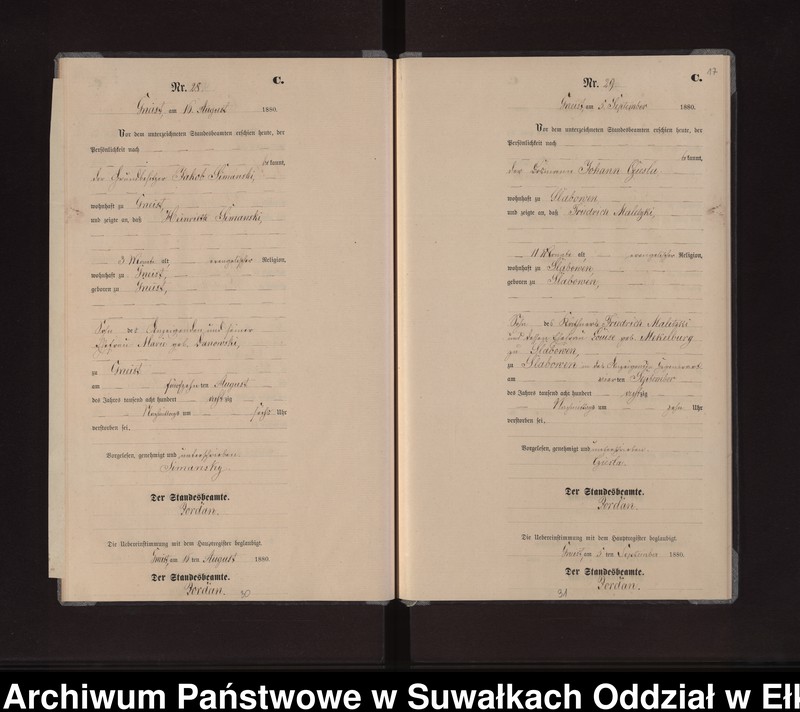 Nr. 28
C.
am 16. August 1880.
Vor dem unterzeichneten Standesbeamten erschien heute, der
Persönlichkeit nach
kannt,
der Grundbesitzer Jakob Simanski,
wohnhaft zu
und zeigte an, daß Heinrich Simanski,
3 Monate alt evangelischer Religion,
wohnhaft zu
geboren zu
Sohn des Anzeigenden und seiner
Ehefrau Marie geb. Danowski,
zu
am fünfzehnten August
des Jahres tausend acht hundert achtzig
Nachmittags um sechs Uhr
verstorben sei.
Vorgelesen, genehmigt und unterschrieben
Simansky
Der Standesbeamte.
Jordan.
Die Uebereinstimmung mit dem Hauptregister beglaubigt.
am 16 ten August 1880.
Der Standesbeamte.
Jordan.
30
17
Nr. 29
C.
am 5. September 1880.
Vor dem unterzeichneten Standesbeamten erschien heute, der
Persönlichkeit nach
kannt,
der Johann
wohnhaft zu Slabowen
und zeigte an, daß Friedrich Maletzki,
11 Monate alt evangelischer Religion,
wohnhaft zu Slabowen,
geboren zu Slabowen,
Sohn des Friedrich Maletzki
und dessen Ehefrau Louise geb. Mekelburg
zu Slabowen,
zu Slabowen in des Anzeigenden Gegenwart
am vierten September
des Jahres tausend acht hundert achtzig
Nachmittags um zehn Uhr
verstorben sei.
Vorgelesen, genehmigt und unterschrieben
Der Standesbeamte.
Jordan.
Die Uebereinstimmung mit dem Hauptregister beglaubigt.
am 5 ten September 1880.
Der Standesbeamte.
Jordan.
31
Archiwum Państwowe w Suwałkach Oddział w Ełk